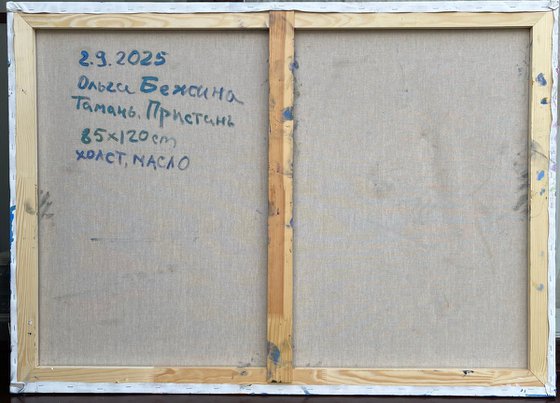 2.9.2025
Ольга Бежина
Тамань. Пристань
85x120cm
ХОЛСТ, МАСЛО